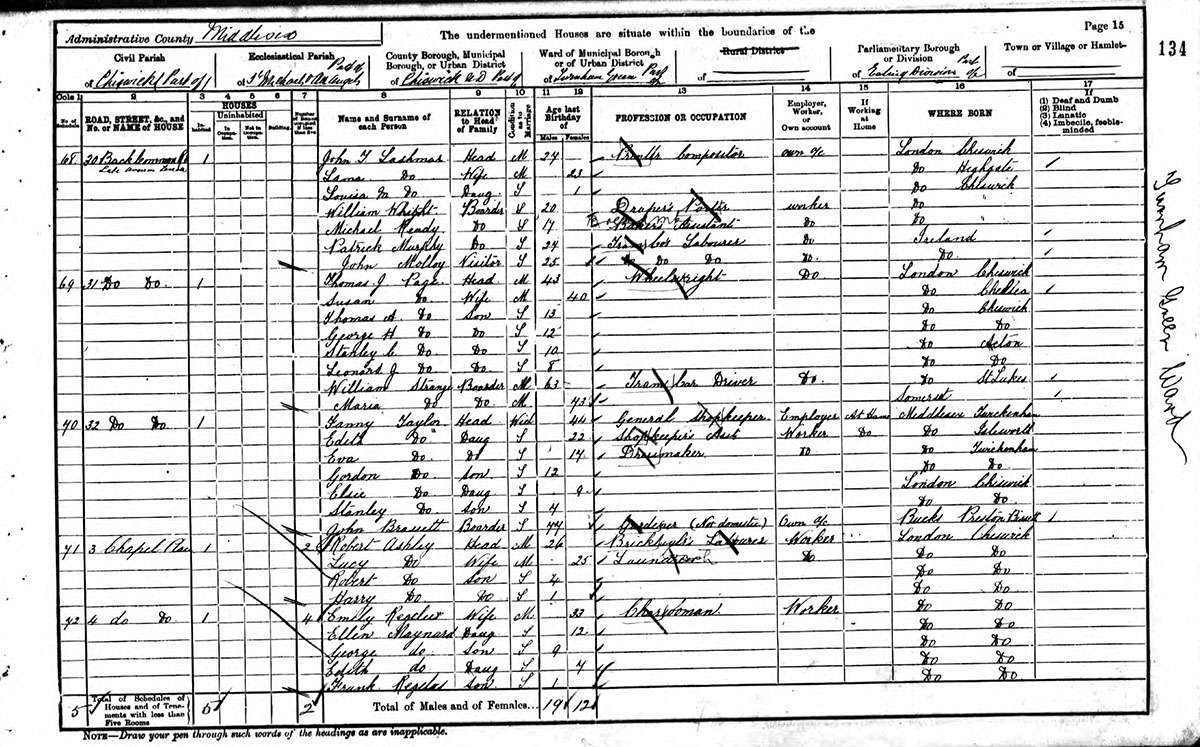 Page 15
Administrative County Middlesex
The undermentioned Houses are situate within the boundaries of the
134
Civil Parish
of Chiswick (Part of)
Ecclesiastical Parish
Part of
of St Michael & All Angels
County Borough, Municipal Borough, or Urban District
of Chiswick U D Part of
Ward of Municipal Borough or of Urban District
of Turnham Green Part of
Rural District
of
Parliamentary Borough or Division
of Ealing Division Part of
Town or Village or Hamlet
of
Cols 1 2 3 4 5 6 7 8 9 10 11 12 13 14 15 16 17
No. of Schedule
ROAD, STREET, &c., and No. or NAME of HOUSE
HOUSES
Inhabited
Uninhabited
In Occupation.
Not in Occupation.
Building.
Number of Rooms occupied if less than five
Name and Surname of each Person
RELATION to Head of Family
Condition as to Marriage
Age last Birthday of
Males Females
PROFESSION OR OCCUPATION
Employer, Worker, or Own account
If Working at Home
WHERE BORN
If
(1) Deaf and Dumb
(2) Blind
(3) Lunatic
(4) Imbecile, feeble-minded
68 30 Back Common Rd 1 John T Lashmar Head M 27 Printer Compositor own a/c London Chiswick
Do Wife M 23 Do Highgate
Louisa M Do Daug S 1 Do Chiswick
William Boarder S 20 Draper's Porter worker Do "
Michael Ready Do S 17 Baker's Assistant Do Do "
Patrick Murphy Do S 24 Tram Car Labourer Do Ireland
John Molloy Visitor S 25 Do Do Do Do Do
69 31 Do Do 1 Thomas J. Page Head M 43 Wheelwright Do London Chiswick
Susan Do Wife M 40 Do Chelsea
Thomas A Do Son S 13 Do Chiswick
George H Do Do S 12 Do Do
Stanley C. Do Do S 10 Do Acton
Leonard J Do Do S 8 Do Do
William Strange Boarder M 63 Tram Car Driver Do Do St Lukes
Maria Do Do M 73 Somerset
70 32 Do Do 1 Fanny Taylor Head Wid 44 General Shopkeeper Employer At Home Middlesex Twickenham
Edith Do Daug S 22 Shopkeeper's Asst Worker Do Do Isleworth
Eva Do Do S 17 Dressmaker Do Do Twickenham
Gordon Do Son S 12 Do Do
Elsie Do Daug S 9 London Chiswick
Stanley Do Son S 7 Do Do
John Brassett Boarder S 77 Gardener (Not domestic) Own a/c Bucks Preston Bissett
71 3 Chapel Place 1 2 Robert Ashley Head M 26 Labourer Worker London Chiswick
Lucy Do Wife M 25 Do Do Do
Robert Do Son S 4 Do Do
Harry Do Do S 1 Do Do
72 4 do Do 1 4 Emily Wife M 33 Charwoman Worker Do Do
Ellen Maynard Daug S 12 Do Do
George do Son S 9 Do Do
Edith do Daug S 7 Do Do
Frank Son S 1 Do Do
5 Total of Schedules of Houses and of Tenements with less than Five Rooms 5 2 Total of Males and of Females... 19 12
NOTE—Draw your pen through such words of the headings as are inapplicable.
Turnham Green Ward